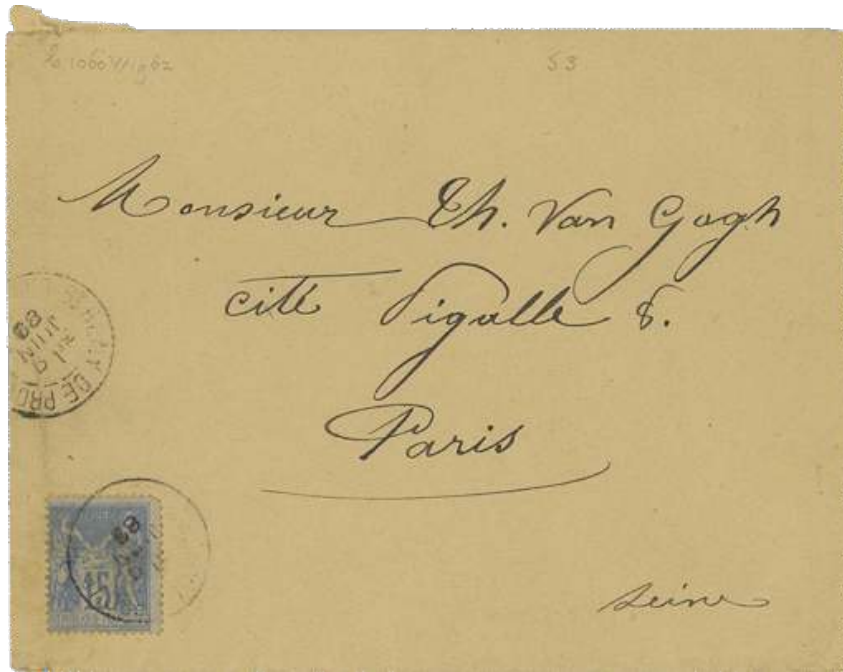 53
Monsieur Th. Van Gogh
cité Pigalle 8.
Paris
Seine
DE PRO
JUIN
89
15
89